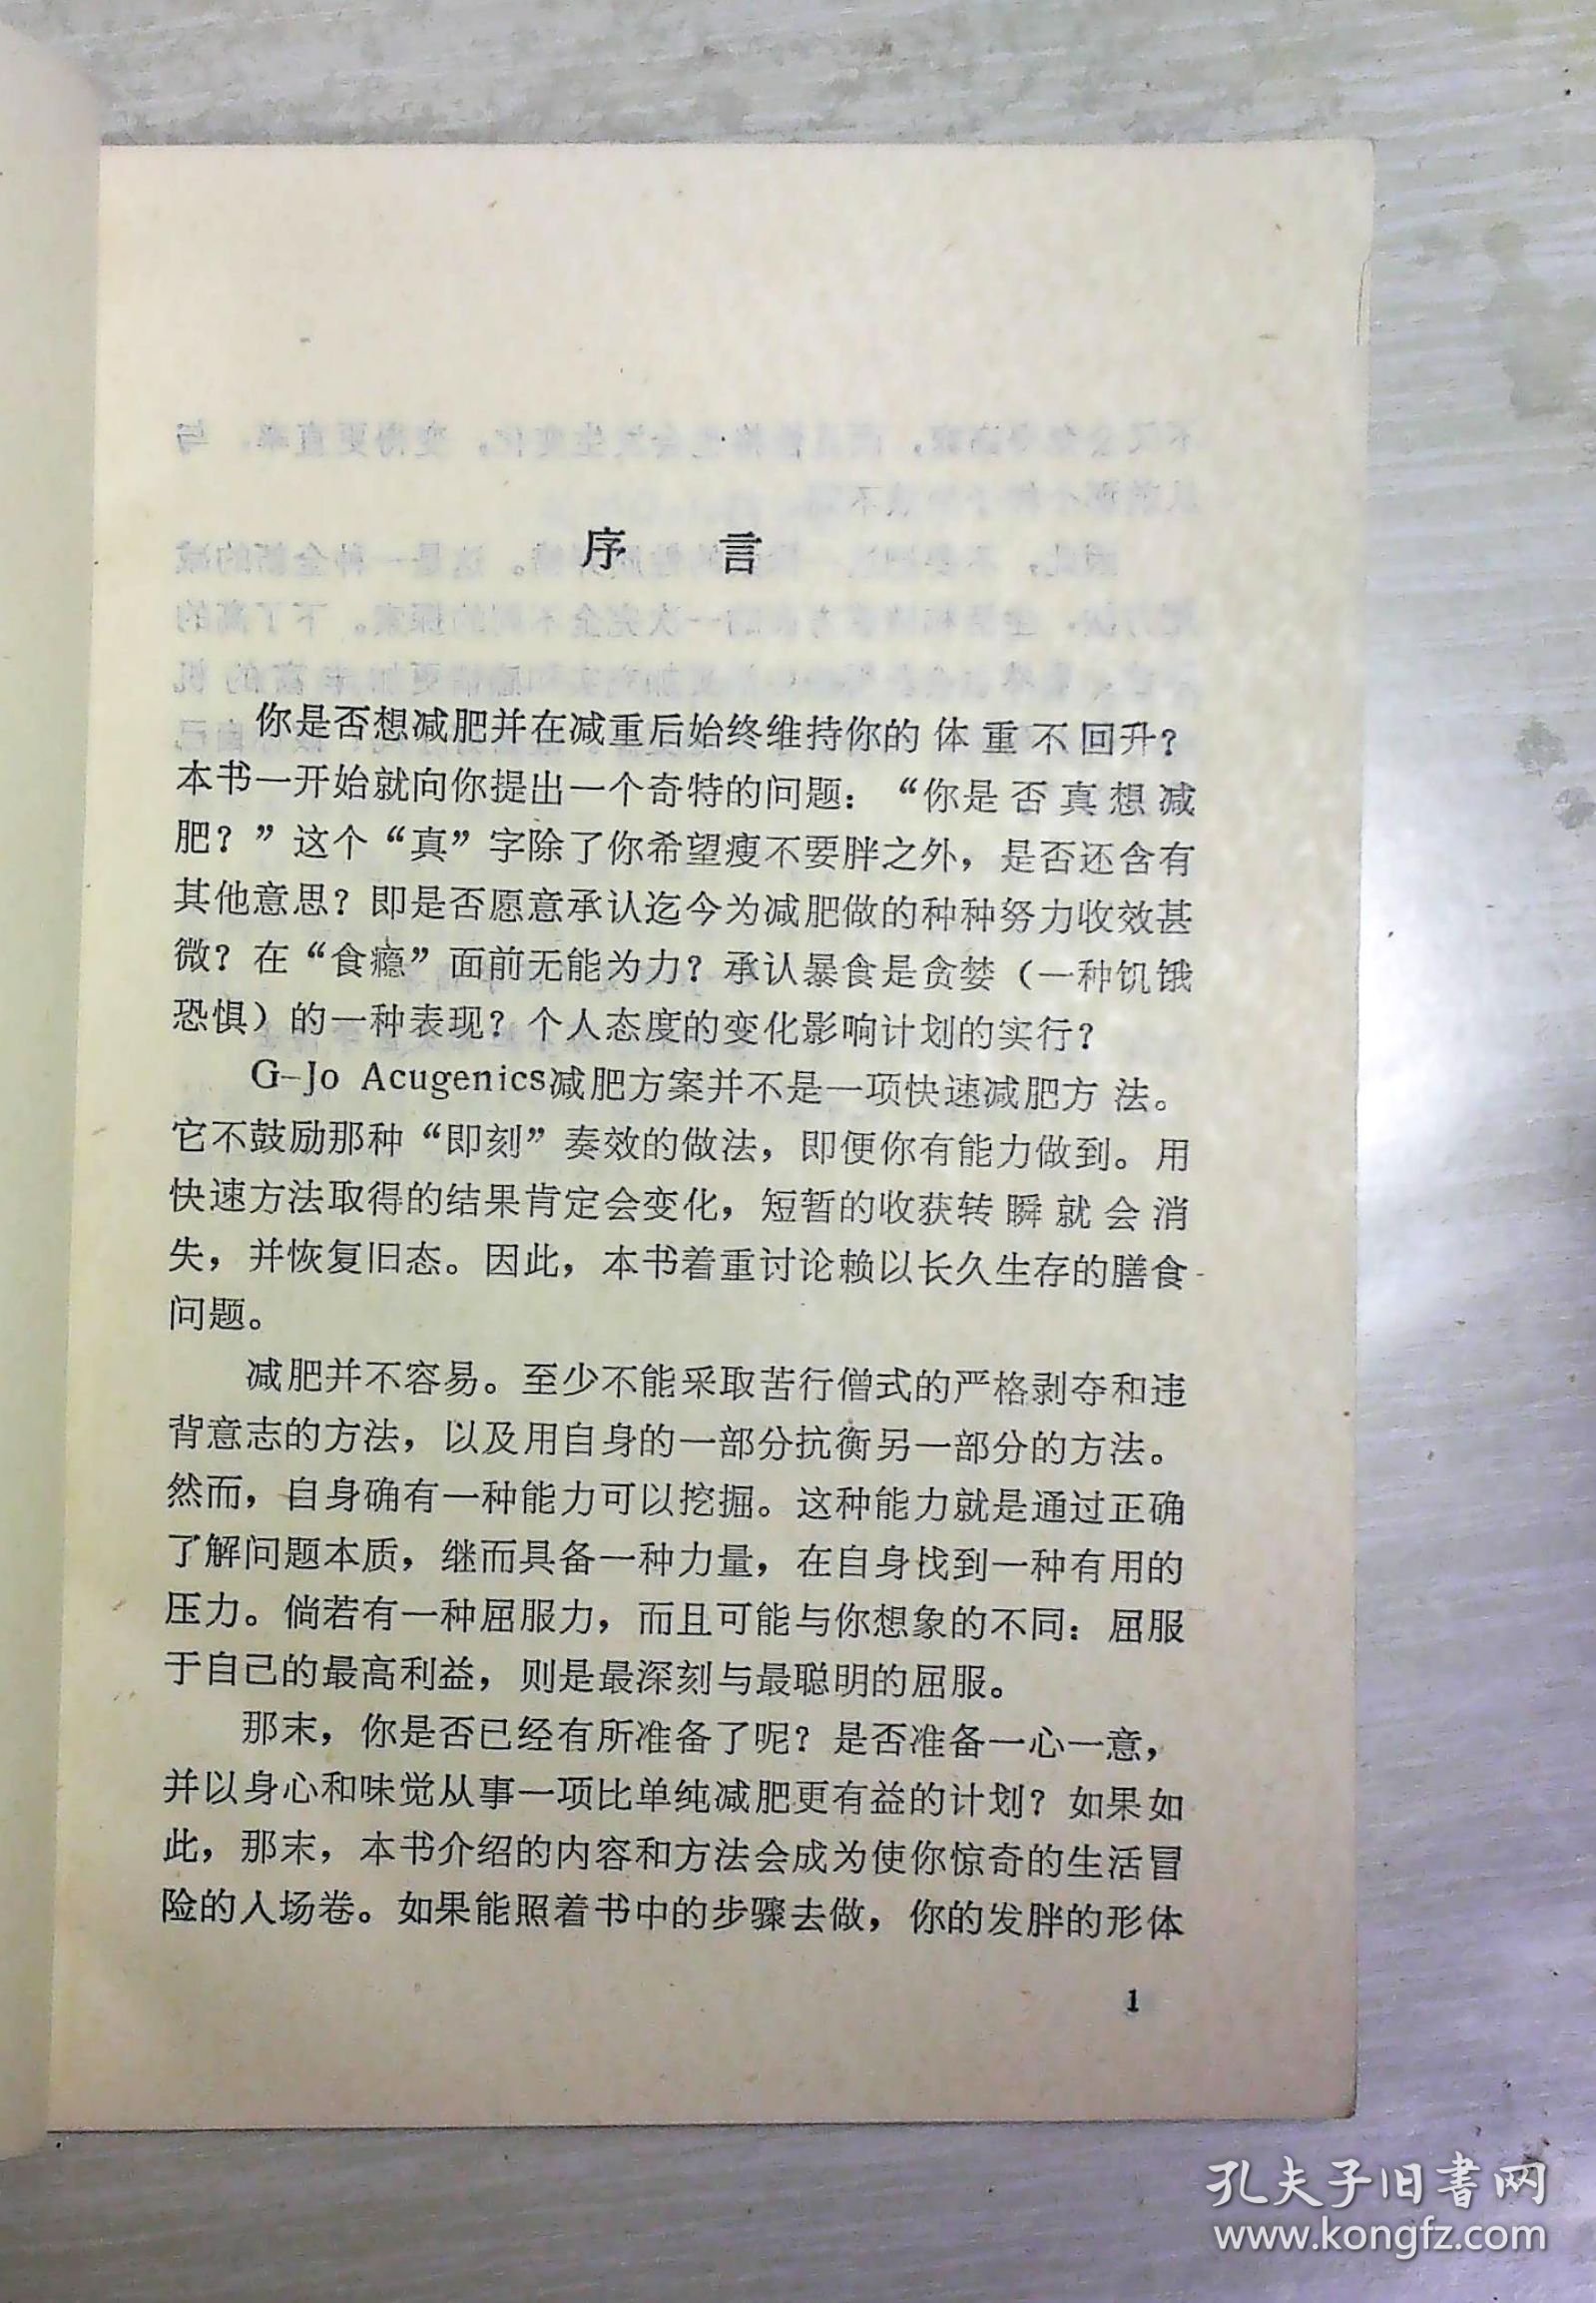 序言
你是否想减肥并在减重后始终维持你的体重不回升？
本书一开始就向你提出一个奇特的问题：“你是否真想减
肥？”这个“真”字除了你希望瘦不要胖之外，是否还含有
其他意思？即是否愿意承认迄今为减肥做的种种努力收效甚
微？在“食瘾”面前无能为力？承认暴食是贪婪（一种饥饿
恐惧）的一种表现？个人态度的变化影响计划的实行？
G-Jo Acugenics减肥方案并不是一项快速减肥方法。
它不鼓励那种“即刻”奏效的做法，即便你有能力做到。用
快速方法取得的结果肯定会变化，短暂的收获转瞬就会消
失，并恢复旧态。因此，本书着重讨论赖以长久生存的膳食
问题。
减肥并不容易。至少不能采取苦行僧式的严格剥夺和违
背意志的方法，以及用自身的一部分抗衡另一部分的方法。
然而，自身确有一种能力可以挖掘。这种能力就是通过正确
了解问题本质，继而具备一种力量，在自身找到一种有用的
压力。倘若有一种屈服力，而且可能与你想象的不同：屈服
于自己的最高利益，则是最深刻与最聪明的屈服。
那末，你是否已经有所准备了呢？是否准备一心一意，
并以身心和味觉从事一项比单纯减肥更有益的计划？如果如
此，那末，本书介绍的内容和方法会成为使你惊奇的生活冒
险的人场卷。如果能照着书中的步骤去做，你的发胖的形体
1
孔夫子旧书网
www.kongfz.com